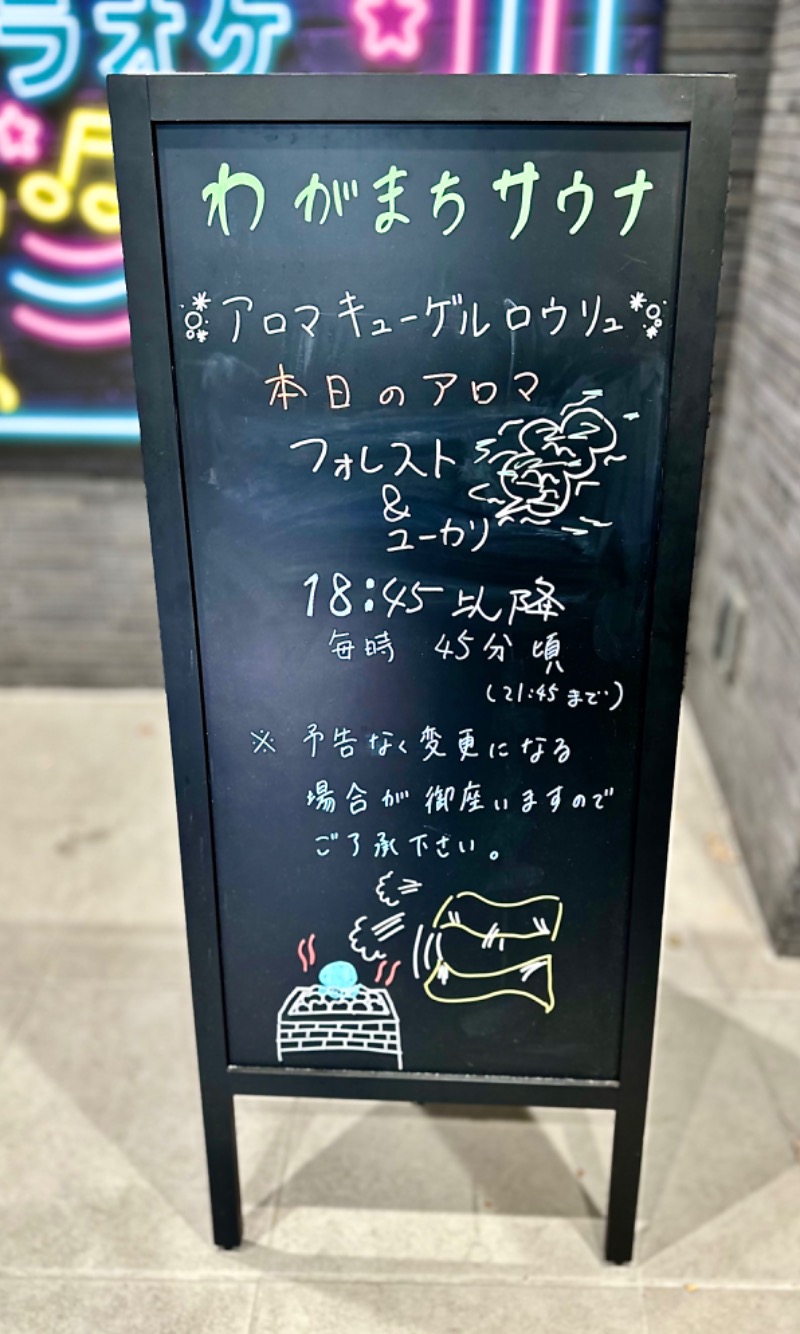 ラオケ
わがまちサウナ
アロマキューゲルロウリュ
本日のアロマ
フォレスト
&
ユーカリ
18:45以降
毎時 45分頃
(21:45まで)
※ 予告なく変更になる
場合が御座いますので
ご了承下さい。